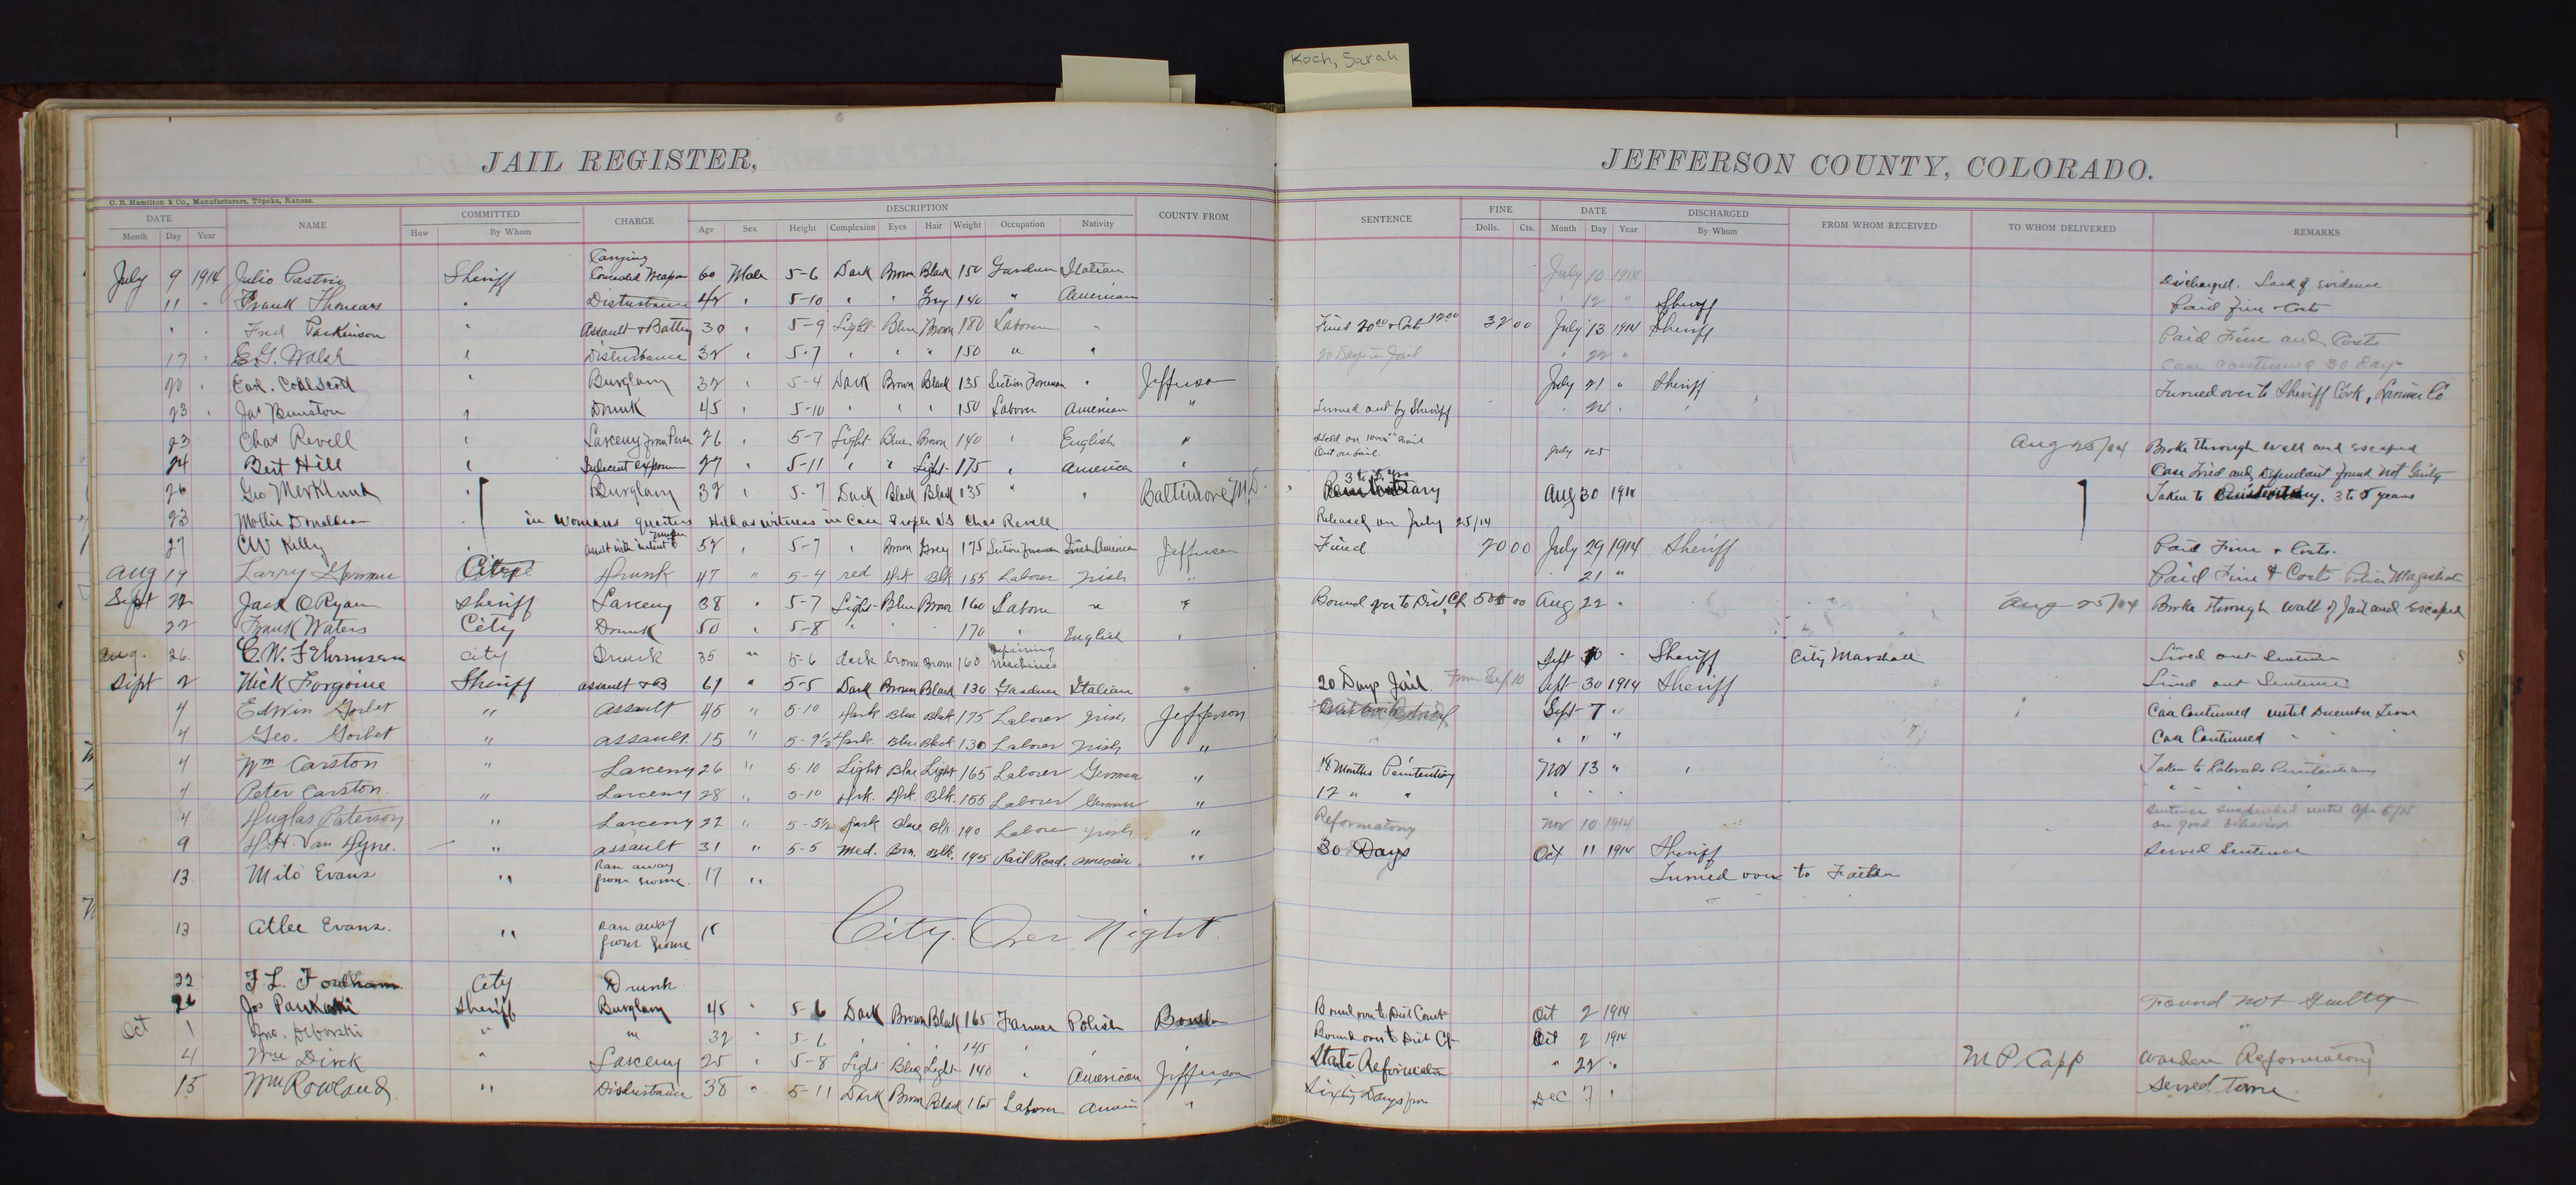 Koch, Sarah
JAIL REGISTER,
JEFFERSON COUNTY, COLORADO.
C. B. Hamilton & Co., Manufacturers, Topeka, Kansas.
DATE NAME COMMITTED CHARGE DESCRIPTION COUNTY FROM SENTENCE FINE DATE DISCHARGED FROM WHOM RECEIVED TO WHOM DELIVERED REMARKS
Month Day Year How By Whom Age Sex Height Complexion Eyes Hair Weight Occupation Nativity Dolls. Cts. Month Day Year By Whom
July 9 1914 Julio Sheriff Carrying Concealed Weapon 60 Male 5-6 Dark Brown Black 150 Gardner Italian July 10 1914 Discharged. Lack of Evidence
11 " Frank " Disturbance 42 " 5-10 " " Grey 140 " American " 12 " Sheriff Paid Fine & Costs
" " Fred Parkinson " Assault & Battery 30 " 5-9 Light Blue Brown 180 Laborer " Fined 20 00 & Costs 12 00 32 00 July 13 1914 Sheriff Paid Fine and Costs
17 " E.G. Walsh " Disturbance 32 " 5-7 " " " 150 " " 20 Days in Jail " 22 " Case continued 30 Days
20 " Earl " Burglary 32 " 5-4 Dark Brown Black 135 Section Foreman " Jefferson July 21 " Sheriff Turned over to Sheriff Cook, Larimer Co
23 " Jas Bunston " Drunk 45 " 5-10 " " " 150 Laborer American " Turned out by Sheriff " 24 " "
23 Chas Revell " Larceny from Person 26 " 5-7 Light Blue Brown 140 " English " Held on bail Aug 25/14 Broke through wall and escaped
24 Bert Hill " Indecent exposure 27 " 5-11 " " Light 175 " America " Out on bail. July 25 Case Tried and Defendant found not Guilty
26 Geo Merklund " Burglary 32 " 5-7 Dark Black Black 135 " " Baltimore M.D. 3 to 5 yrs Penitentiary Aug 30 1914 Taken to Penitentiary. 3 to 5 years
23 Mollie Donaldson " in Womans quarters Held as witness in Case People VS Chas Revell Released on July 25/14
27 CW Kelly " assault with intent to 52 " 5-7 " Brown Grey 175 Section Foreman Irish American Jefferson Fined 20 00 July 29 1914 Sheriff Paid Fine & Costs.
Aug 19 Larry City Drunk 47 " 5-4 red Drk Blk 155 Laborer Irish " " 21 " Paid Fine & Costs Police Magistrate
Sept 22 Jack O Ryan Sheriff Larceny 38 " 5-7 Light Blue Brown 160 Laborer " " Bound over to Dist. Ct 500 00 Aug 22 " Aug 25/14 Broke through wall of Jail and Escaped
22 Frank Waters City Drunk 50 " 5-8 " " " 170 " English "
Aug. 26 C.W. City Drunk 35 " 5-6 dark brown Brown 160 repairing machines Sept " Sheriff City Marshall Lived out Sentence
Sept 2 Nick Forgoine Sheriff assault & B 61 " 5-5 Dark Brown Black 130 Gardner Italian " 20 Days Jail. From Sep 10 Sept 30 1914 Sheriff Lived out Sentence
4 Edwin Gorbet " Assault 45 " 5-10 Dark Blue Blak 175 Laborer Irish Jefferson Sept 7 " Case Continued until December Term
4 Geo. Gorbet " assault 15 " 5-9½ Dark. Blue Black 130 Laborer Irish " " " " Case Continued " " "
4 Wm Carston " Larceny 26 " 5-10 Light Blue Light 165 Laborer German " 18 Months Penitentiary Nov 13 " " Taken to Colorado Penitentiary
4 Peter Carston. " Larceny 28 " 5-10 Drk. Drk. Blk. 155 Laborer German " 12 " " " " " " " " "
4 Huglas Paterson " Larceny 22 " 5-5½ Dark Blue Blk 140 Laborer Irish " Reformatory Nov 10 1914 Sentence suspended until Apr 5/15 on good behavior
9 H.H. Van Dyne. " assault 31 " 5-5 Med. Brn. Blk. 145 Rail Road. American. " 30 Days Oct 11 1914 Sheriff Served Sentence
13 Milo Evans " Ran away from home. 17 " Turned over to Father
13 Atlee Evans. " Ran away from home 15 City Over Night
22 F. L. Fordham City Drunk
26 Jos Sheriff Burglary 45 " 5-6 Dark Brown Black 165 Farmer Polish Boulder Bound over to Dist Court Oct 2 1914 Found not Guilty
Oct 1 Jno. Deborski " " 32 " 5-6 " " " 145 " " " Bound over to Dist Ct Oct 2 1914 "
4 Wm Dirck " Larceny 25 " 5-8 Light Blue Light 140 " American Jefferson State Reformatory " 22 " M P Capp Warden Reformatory
15 Wm Rowland " Disturbance 38 " 5-11 Dark Brown Black 165 Laborer " Sixty Days from Dec 7 " Served Time